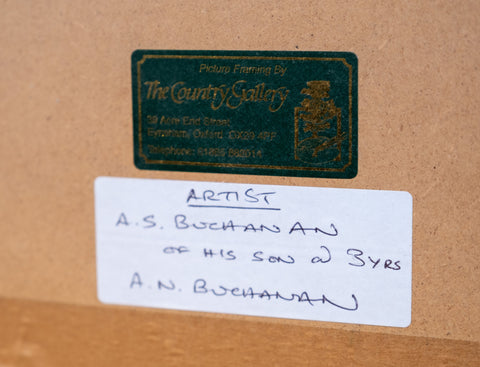 Picture Framing By
The Country Gallery
Acre End Street
Oxford
Telephone:
ARTIST
A.S. BUCHANAN
OF HIS SON @ 3 YRS
A.N. BUCHANAN